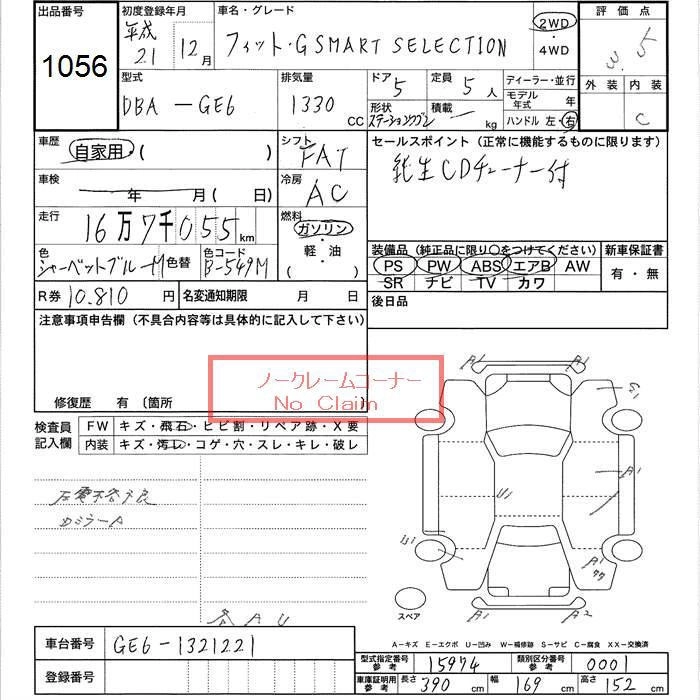 出品番号 初度登録年月 車名・グレード 評価点
1056 平成 21 12月 フィット・G SMART SELECTION 2WD・4WD 3.5
型式 排気量 ドア 5 定員 5人 ディーラー・並行 外装 内装
DBA-GE6 1330 CC 形状 ステーションワゴン 積載 ー kg モデル年式 年 ハンドル 左・右 C
車歴 自家用・( ) シフト FAT セールスポイント (正常に機能するものに限ります)
車検 年 月( 日) 冷房 AC 純生CDチューナー付
走行 16万7千055km 燃料 ガソリン・軽・油・( )
色 シャーベットブルーM 色替 色コード B-549M 装備品 (純正品に限り○をつけてください) 新車保証書
PS PW ABS エアB AW 有・無
SR ナビ TV カワ
R券 10.810円 名変通知期限 月 日 後日品
注意事項申告欄 (不具合内容等は具体的に記入して下さい)
ノークレームコーナー
No Claim
修復歴 有 〔箇所
検査員記入欄 FW キズ・飛石・ヒビ割・リペア跡・X要
内装 キズ・汚レ・コゲ・穴・スレ・キレ・破レ
A1 A1
E1
U1 A1
A1
77
スペア
A1 A2
A-キズ E-エクボ U-凹み W-補修跡 S-サビ C-腐食 XX-交換済
車台番号 GE6-1321221
型式指定番号 参考 15974 類別区分番号 参考 0001
登録番号
車庫証明用 参考 長さ 390 cm 幅 169 cm 高さ 152 cm